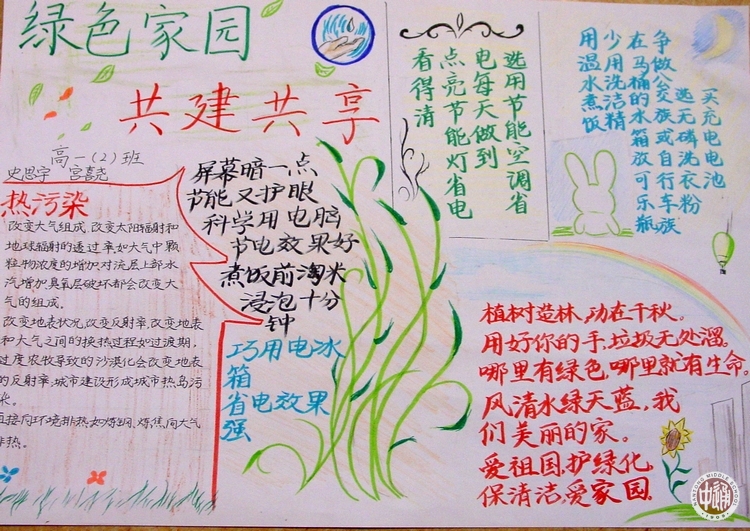 绿色家园
共建共享
高一(2)班
史思宇 宫喜尧
热污染
改变大气组成,改变太阳辐射和
地球辐射的透过率如大气中颗
粒物浓度的增加对流层上部水
汽增加臭氧层破坏都会改变大
气的组成.
改变地表状况,改变反射率,改变地表
和大气之间的换热过程如过渡期.
过度农牧导致的沙漠化会改变地表
的反射率,城市建设形成城市热岛污
直接向环境排热,如炼钢、炼焦向大气
排热.
屏幕暗一点
节能又护眼
科学用电脑
节电效果好
煮饭前淘米
浸泡十分
钟
巧用电冰
箱
省电效果
强
选用节能空调省
电每天做到
点亮节能灯省电
看得清
买充电电池
选无磷洗衣粉
争做公交族或自行车族
在马桶的水箱放可乐瓶
少用洗洁精
用温水煮饭
植树造林,功在千秋。
用好你的手,垃圾无处溜。
哪里有绿色,哪里就有生命。
风清水绿天蓝,我
们美丽的家。
爱祖国,护绿化,
保清洁,爱家园.